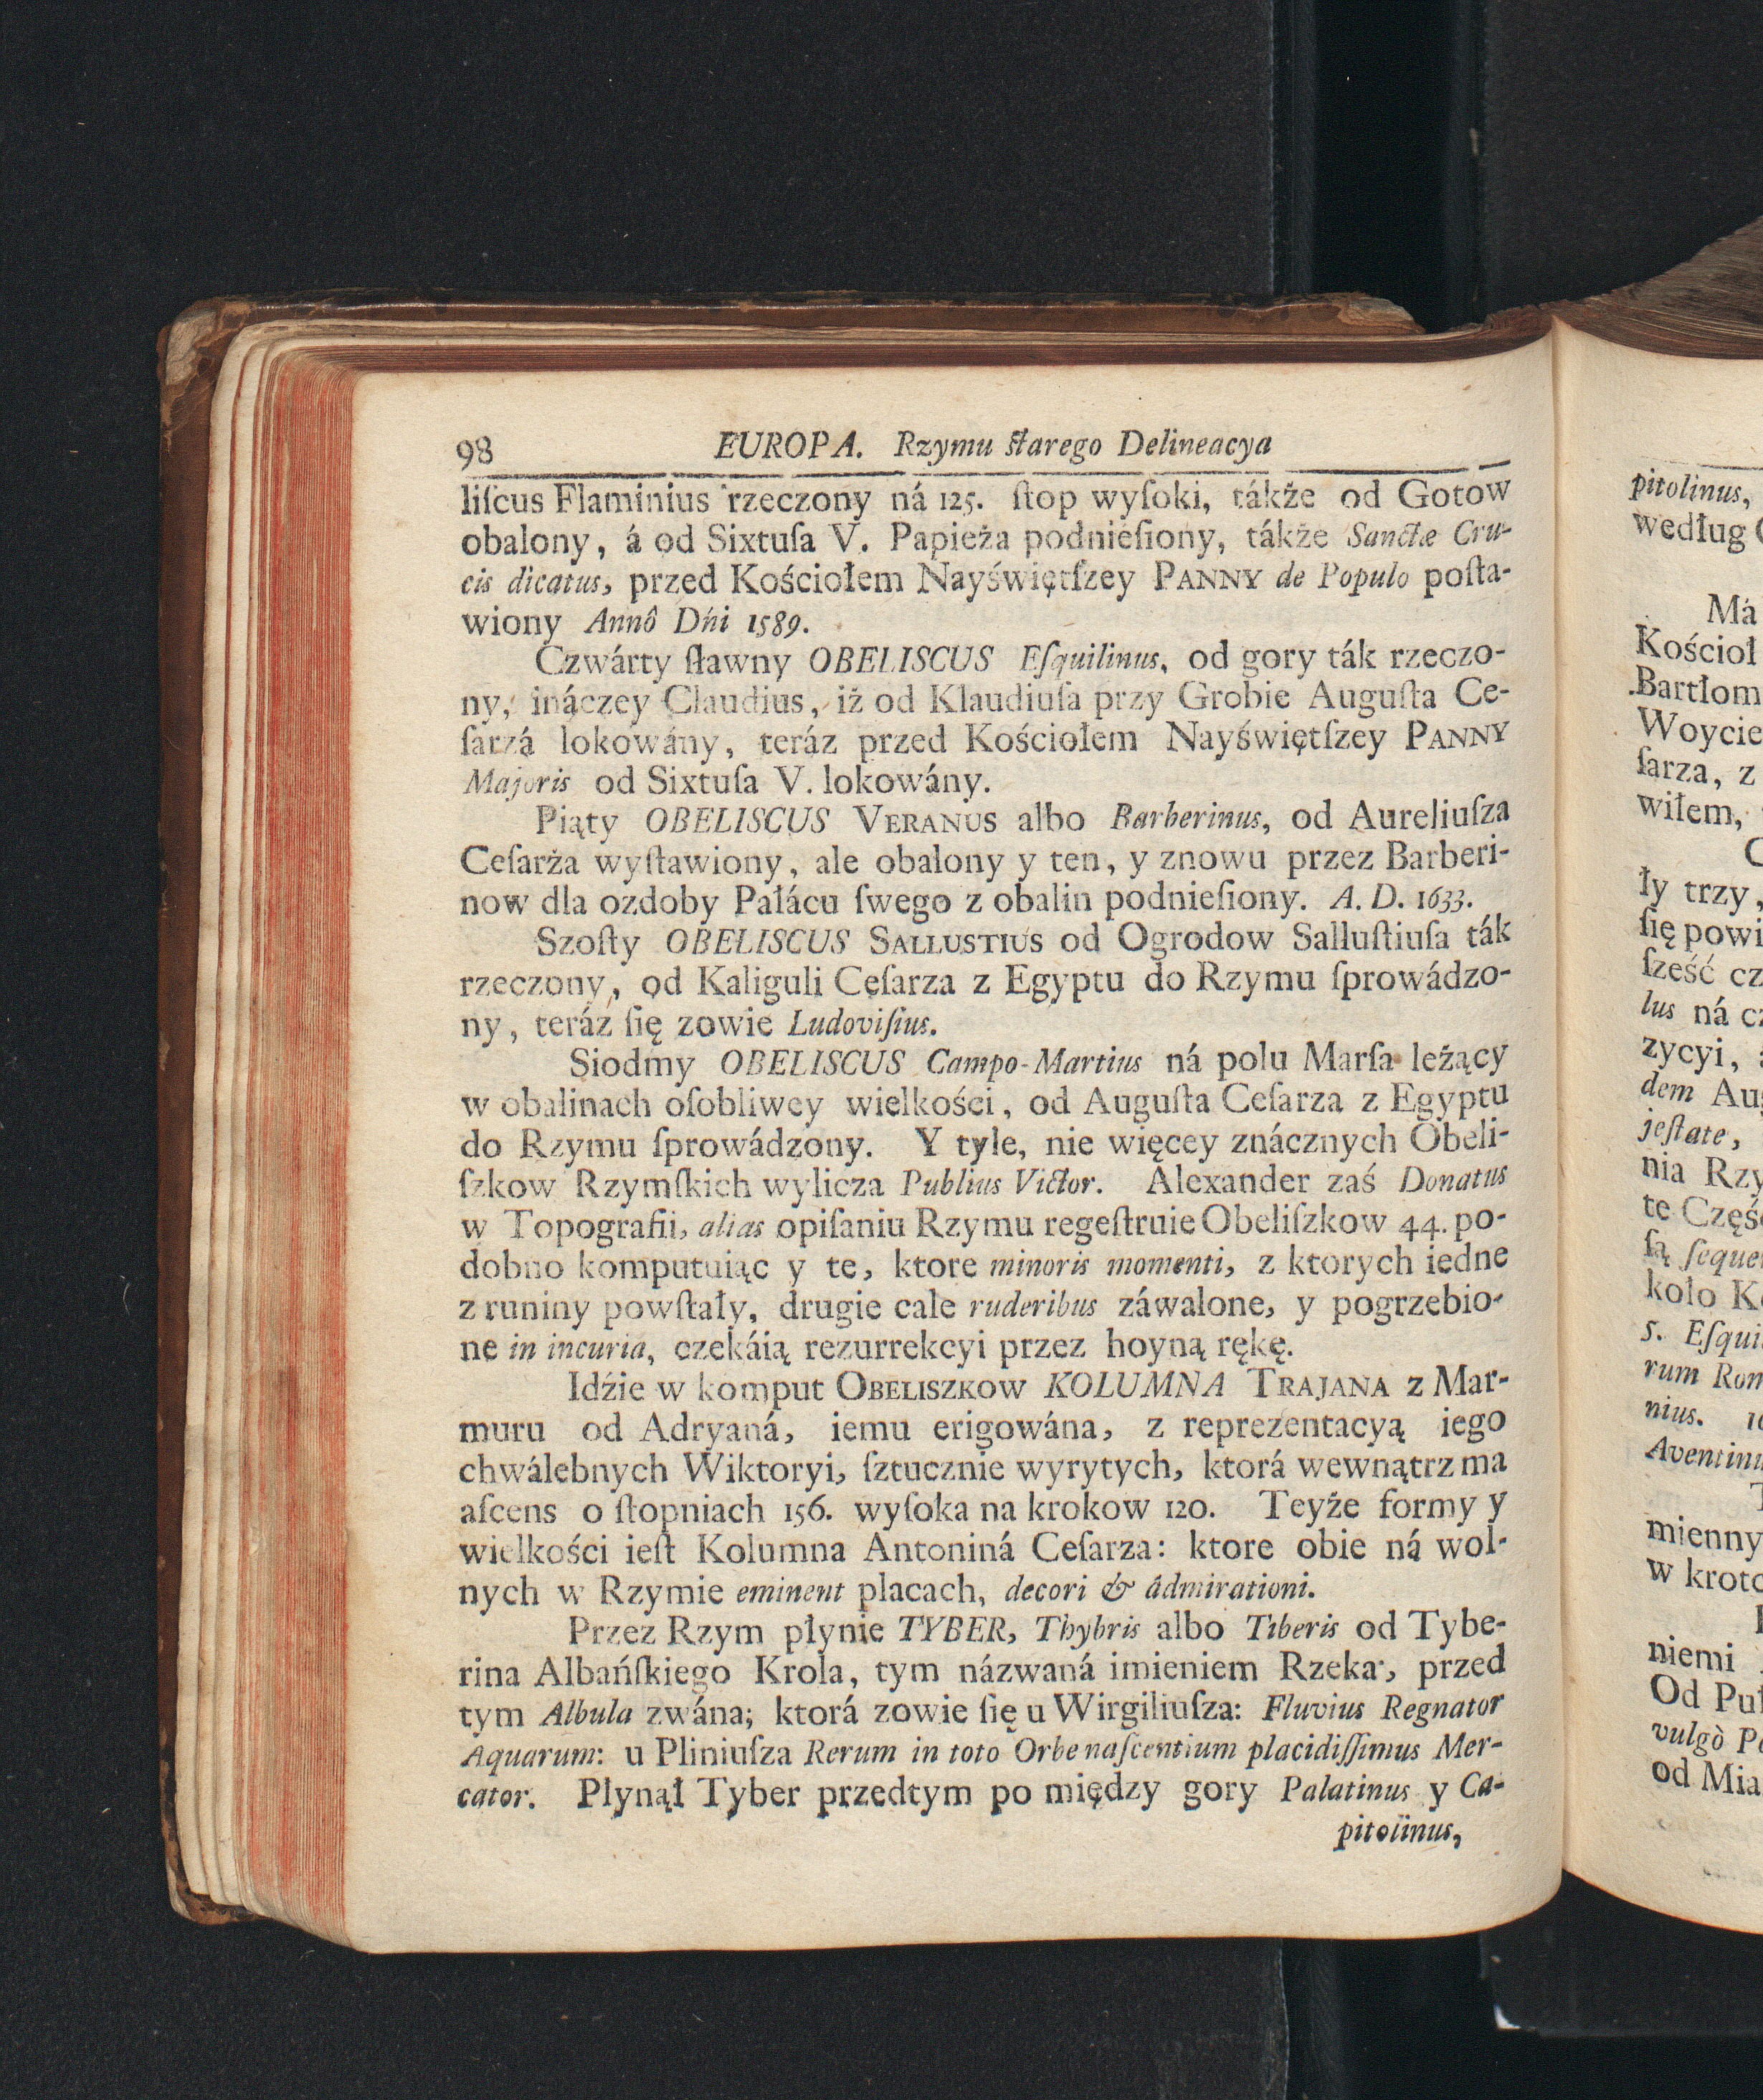 98 EUROPA. Rzymu starego Delineacya
liſcus Flaminius rzeczony ná 125. ſtop wyſoki, tákże od Gotow
obalony, á od Sixtuſa V. Papieża podnieſiony, tákże Sanctæ Cru-
cis dicatus, przed Kościołem Nayświętſzey PANNY de Populo poſta-
wiony Annô Dńi 1589.
Czwárty ſławny OBELISCUS Eſquilinus, od gory ták rzeczo-
ny, ináczey Claudius, iż od Klaudiuſa przy Grobie Auguſta Ce-
ſarzá lokowány, teráz przed Kościołem Nayświętſzey PANNY
Majoris od Sixtuſa V. lokowány.
Piąty OBELISCUS VERANUS albo Barberinus, od Aureliuſza
Ceſarża wyſtawiony, ale obalony y ten, y znowu przez Barberi-
now dla ozdoby Pałácu ſwego z obalin podnieſiony. A. D. 1633.
Szoſty OBELISCUS SALLUSTIUS od Ogrodow Salluſtiuſa ták
rzeczony, od Kaliguli Ceſarza z Egyptu do Rzymu ſprowádzo-
ny, teráz ſię zowie Ludoviſius.
Siodmy OBELISCUS Campo-Martius ná polu Marſa leżący
w obalinach oſobliwey wielkości, od Auguſta Ceſarza z Egyptu
do Rzymu ſprowádzony. Y tyle, nie więcey znácznych Obeli-
ſzkow Rzymſkich wylicza Publius Victor. Alexander zaś Donatus
w Topografii, alias opiſaniu Rzymu regeſtruie Obeliſzkow 44. po-
dobno komputuiąc y te, ktore minoris momenti, z ktorych iedne
z runiny powſtały, drugie cale ruderibus záwalone, y pogrzebio-
ne in incuria, czekáią rezurrekcyi przez hoyną rękę.
Idźie w komput OBELISZKOW KOLUMNA TRAJANA z Mar-
muru od Adryaná, iemu erigowána, z reprezentacyą iego
chwálebnych Wiktoryi, ſztucznie wyrytych, ktorá wewnątrz ma
aſcens o ſtopniach 156. wyſoka na krokow 120. Teyże formy y
wielkości ieſt Kolumna Antoniná Ceſarza: ktore obie ná wol-
nych w Rzymie eminent placach, decori & ádmirationi.
Przez Rzym płynie TYBER, Thybris albo Tiberis od Tybe-
rina Albańſkiego Krola, tym názwaná imieniem Rzeka, przed
tym Albula zwána; ktorá zowie ſię u Wirgiliuſza: Fluvius Regnator
Aquarum: u Pliniuſza Rerum in toto Orbe naſcentium placidiſſimus Mer-
cator. Płynął Tyber przedtym po między gory Palatinus y Ca-
pitolinus,
pitolinus,
według
Má
Kościoł
Bartłom
Woycie
ſarza, z
wiłem,
ły trzy,
ſię powi
ſześć cz
lus ná cz
zycyi,
dem Aug
jeſtate,
nia Rzy
te Częś
ſą ſeque
koło K
5. Eſqui
rum Rom
nius. 10
Aventinu
mienny
w kroto
niemi
Od Puſ
vulgò P
od Mia